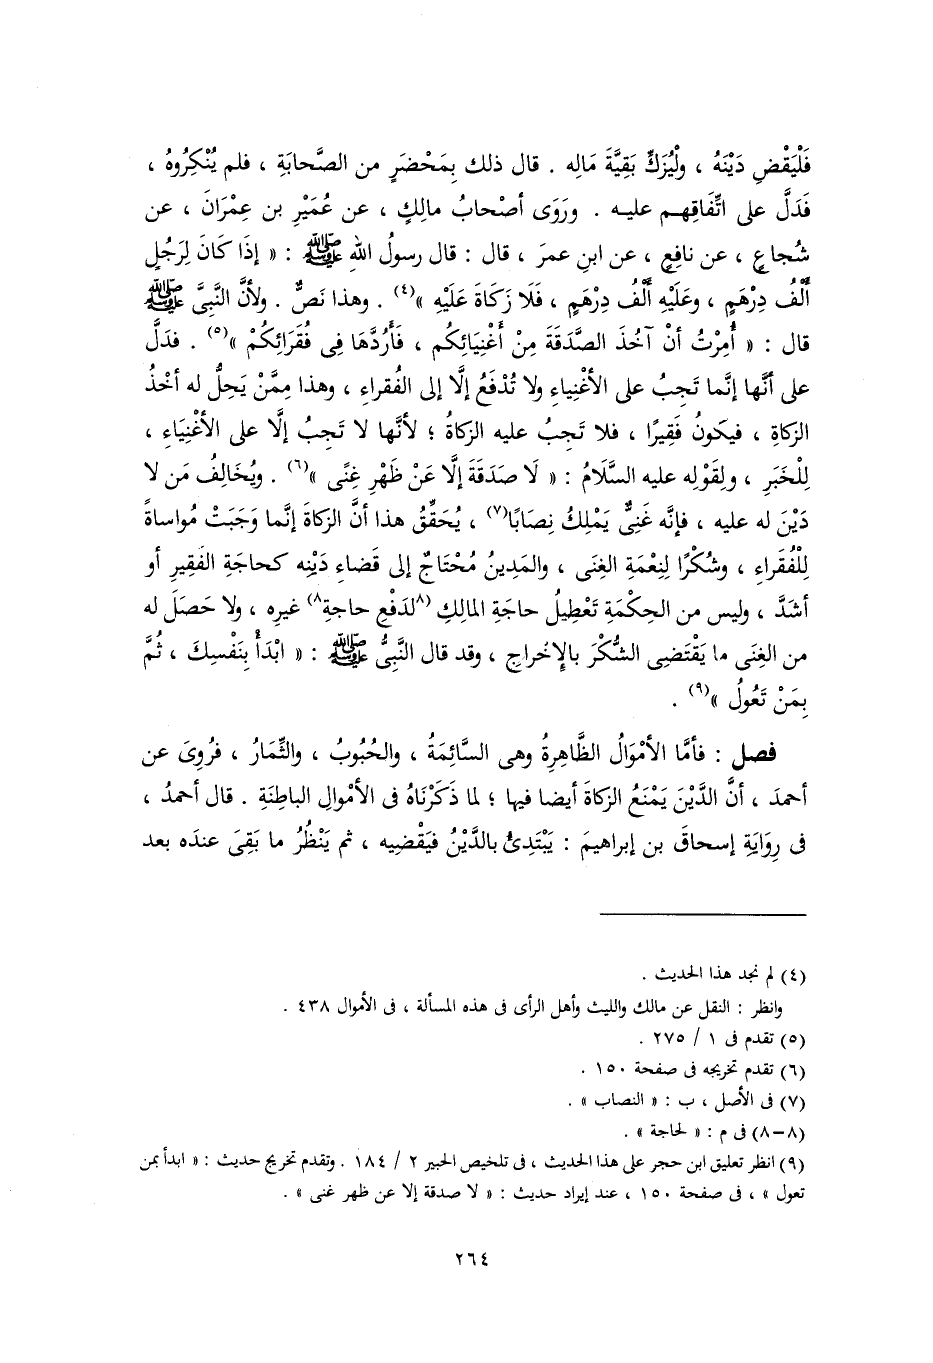 فَلْيَقْضِ دَيْنَهُ ، ولْيُزَكِّ بَقِيَّةَ مَالِه . قال ذلك بِمَحْضَرٍ من الصَّحابَةِ ، فلم يُنْكِرُوهُ ،
فَدَلَّ على اتِّفَاقِهـم عليـه . ورَوَى أصْحابُ مالِكٍ ، عن عُمَيْرِ بن عِمْرَانَ ، عن
شُجاعٍ ، عن نافِعٍ ، عن ابنِ عمرَ ، قال : قال رسولُ اللهِ ﷺ : « إذَا كَانَ لِرَجُلٍ
أَلْفُ دِرْهَمٍ ، وعَلَيْهِ أَلْفُ دِرْهَمٍ ، فَلَا زَكَاةَ عَلَيْهِ »(٤) . وهذا نَصٌّ . ولأنَّ النَّبِىَّ ﷺ
قال : « أُمِرْتُ أنْ آخُذَ الصَّدَقَةَ مِنْ أَغْنِيَائِكُم ، فَأَرُدَّهَا فِى فُقَرَائِكُمْ »(٥) . فدَلَّ
على أنَّها إنَّما تَجِبُ على الأغْنِياءِ ولا تُدْفَعُ إلَّا إلى الفُقراءِ ، وهذا مِمَّنْ يَحِلُّ له أخْذُ
الزكاةِ ، فيكونُ فَقِيرًا ، فلا تَجِبُ عليه الزكاةُ ؛ لأنَّها لا تَجِبُ إلَّا على الأغْنِيَاءِ ،
لِلْخَبَرِ ، ولِقَوْلِه عليه السَّلَامُ : « لَا صَدَقَةَ إلَّا عَنْ ظَهْرِ غِنًى »(٦) . ويُخَالِفُ مَن لا
دَيْنَ له عليه ، فإنَّه غَنِىٌّ يَمْلِكُ نِصَابًا(٧) ، يُحَقِّقُ هذا أنَّ الزكاةَ إنَّما وَجَبَتْ مُواساةً
لِلْفُقَراءِ ، وشُكْرًا لِنِعْمَةِ الغِنَى ، والمَدِينُ مُحْتَاجٌ إلى قَضاءِ دَيْنِه كحاجَةِ الفَقِيرِ أو
أشَدَّ ، وليس من الحِكْمَةِ تَعْطِيلُ حاجَةِ المالِكِ (٨لدَفْعِ حاجةِ٨) غيرِه ، ولا حَصَلَ له
من الغِنَى ما يَقْتَضِى الشُّكْرَ بالإخراجِ ، وقد قال النَّبِىُّ ﷺ : « ابْدَأْ بِنَفْسِكَ ، ثُمَّ
بِمَنْ تَعُولُ »(٩) .
فصل : فأمَّا الأمْوَالُ الظَّاهِرَةُ وهى السَّائِمَةُ ، والحُبُوبُ ، والثِّمَارُ ، فرُوِىَ عن
أحمدَ ، أنَّ الدَّيْنَ يَمْنَعُ الزكاةَ أيضا فيها ؛ لما ذَكَرْنَاهُ فى الأمْوالِ الباطِنَةِ . قال أحمدُ ،
فى رِوَايَةِ إسحاقَ بن إبراهيمَ : يَبْتَدِئُ بالدَّيْنِ فيَقْضِيه ، ثم يَنْظُرُ ما بَقِىَ عندَه بعد
(٤) لم نجد هذا الحديث .
وانظر : النقل عن مالك والليث وأهل الرأى فى هذه المسألة ، فى الأموال ٤٣٨ .
(٥) تقدم فى ١ / ٢٧٥ .
(٦) تقدم تخريجه فى صفحة ١٥٠ .
(٧) فى الأصل ، ب : « النصاب » .
(٨-٨) فى م : « لحاجة » .
(٩) انظر تعليق ابن حجر على هذا الحديث ، فى تلخيص الحبير ٢ / ١٨٤ . وتقدم تخريج حديث : « ابدأ بمن
تعول » ، فى صفحة ١٥٠ ، عند إيراد حديث : « لا صدقة إلا عن ظهر غنى » .
٢٦٤